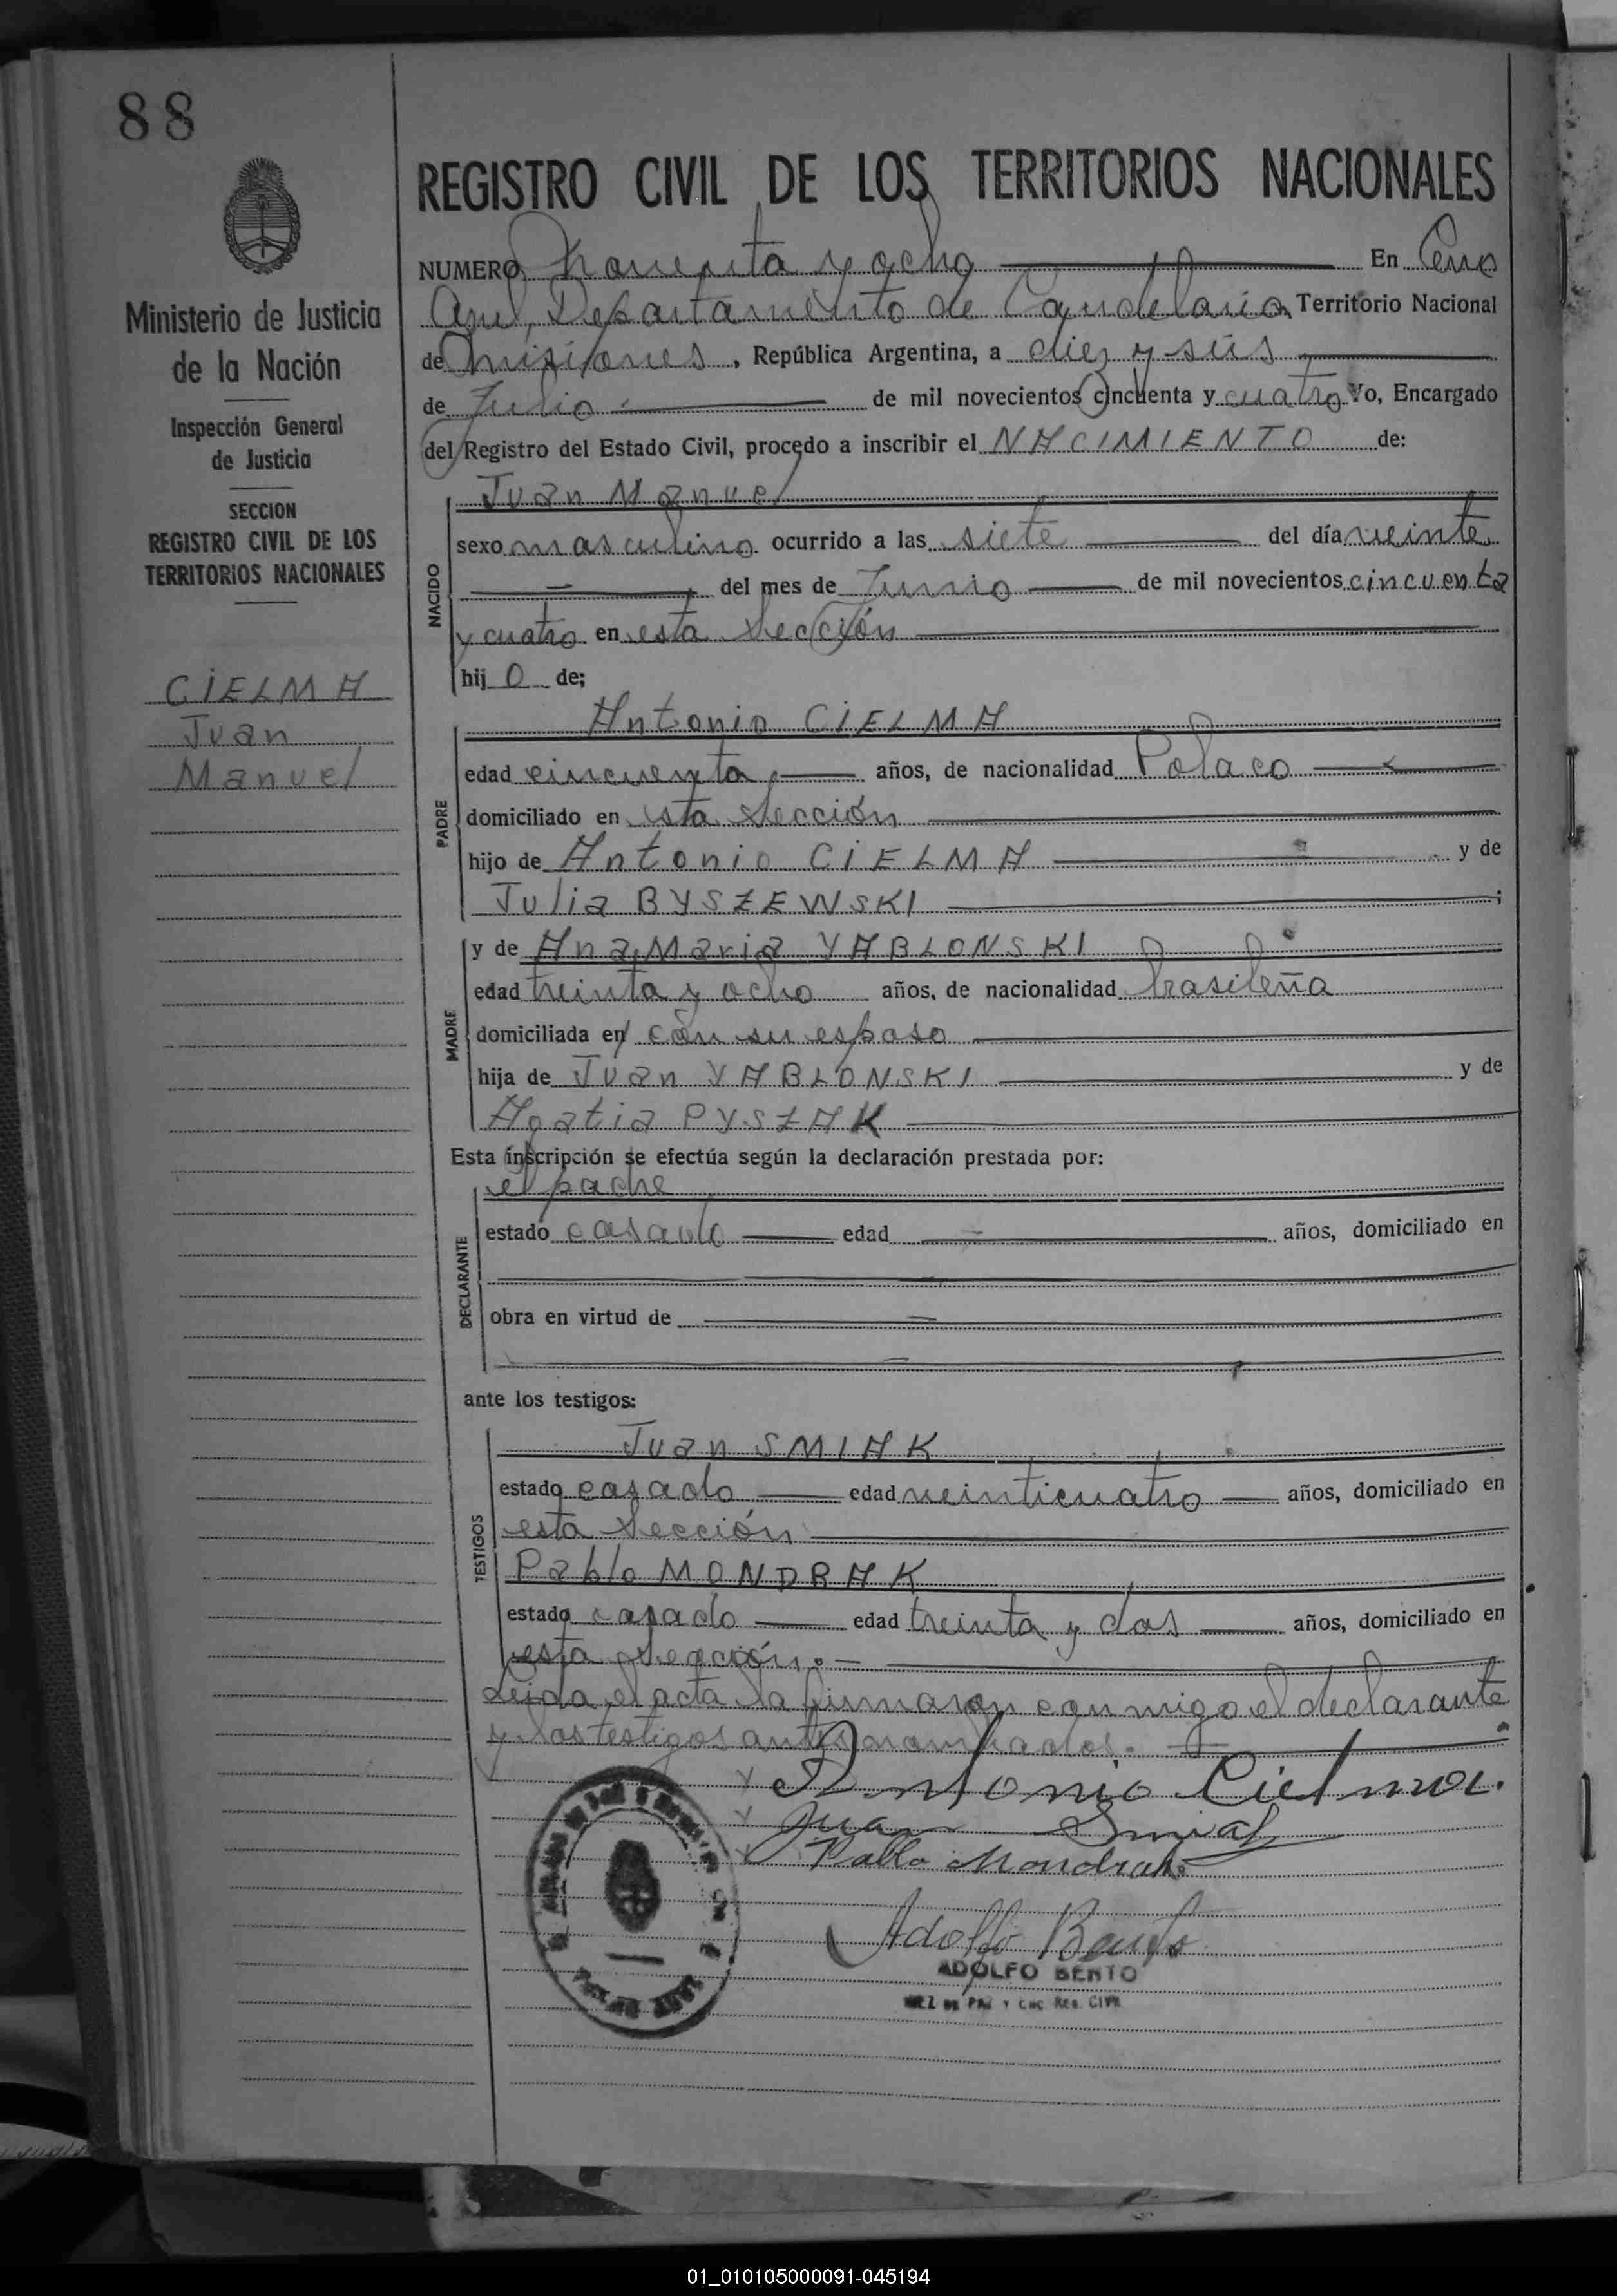 88
REGISTRO CIVIL DE LOS TERRITORIOS NACIONALES
NUMERO Noventa y ocho En Cerro
Azul, Departamento de Candelaria Territorio Nacional
de Misiones, República Argentina, a diez y seis
de Julio de mil novecientos cincuenta y cuatro Yo, Encargado
del Registro del Estado Civil, procedo a inscribir el NACIMIENTO de:
Ministerio de Justicia
de la Nación
Inspección General
de Justicia
SECCION
REGISTRO CIVIL DE LOS
TERRITORIOS NACIONALES
CIELMA
Juan
Manuel
NACIDO
Juan Manuel
sexo masculino ocurrido a las siete del día veinte
del mes de Junio de mil novecientos cincuenta
y cuatro en esta Sección
hij o de;
PADRE
Antonio CIELMA
edad cincuenta años, de nacionalidad Polaco
domiciliado en esta Sección
hijo de Antonio CIELMA y de
Julia BYSZEWSKI ;
MADRE
y de Ana Maria YABLONSKI
edad treinta y ocho años, de nacionalidad brasileña
domiciliada en con su esposo
hija de Juan YABLONSKI y de
Agatia PYSZAK
Esta inscripción se efectúa según la declaración prestada por:
DECLARANTE
el padre
estado casado edad años, domiciliado en
obra en virtud de
ante los testigos:
TESTIGOS
Juan SMIAK
estado casado edad veinticuatro años, domiciliado en
esta Sección
Pablo MONDRAK
estado casado edad treinta y dos años, domiciliado en
esta Sección.-
Leida el acta la firmaron conmigo el declarante
y los testigos antes nombrados.-
Antonio Cielma.
Juan Smiak
Pablo Mondrak
Adolfo Bento
ADOLFO BENTO
JUEZ DE PAZ Y ENC REG. CIVIL
01_010105000091-045194